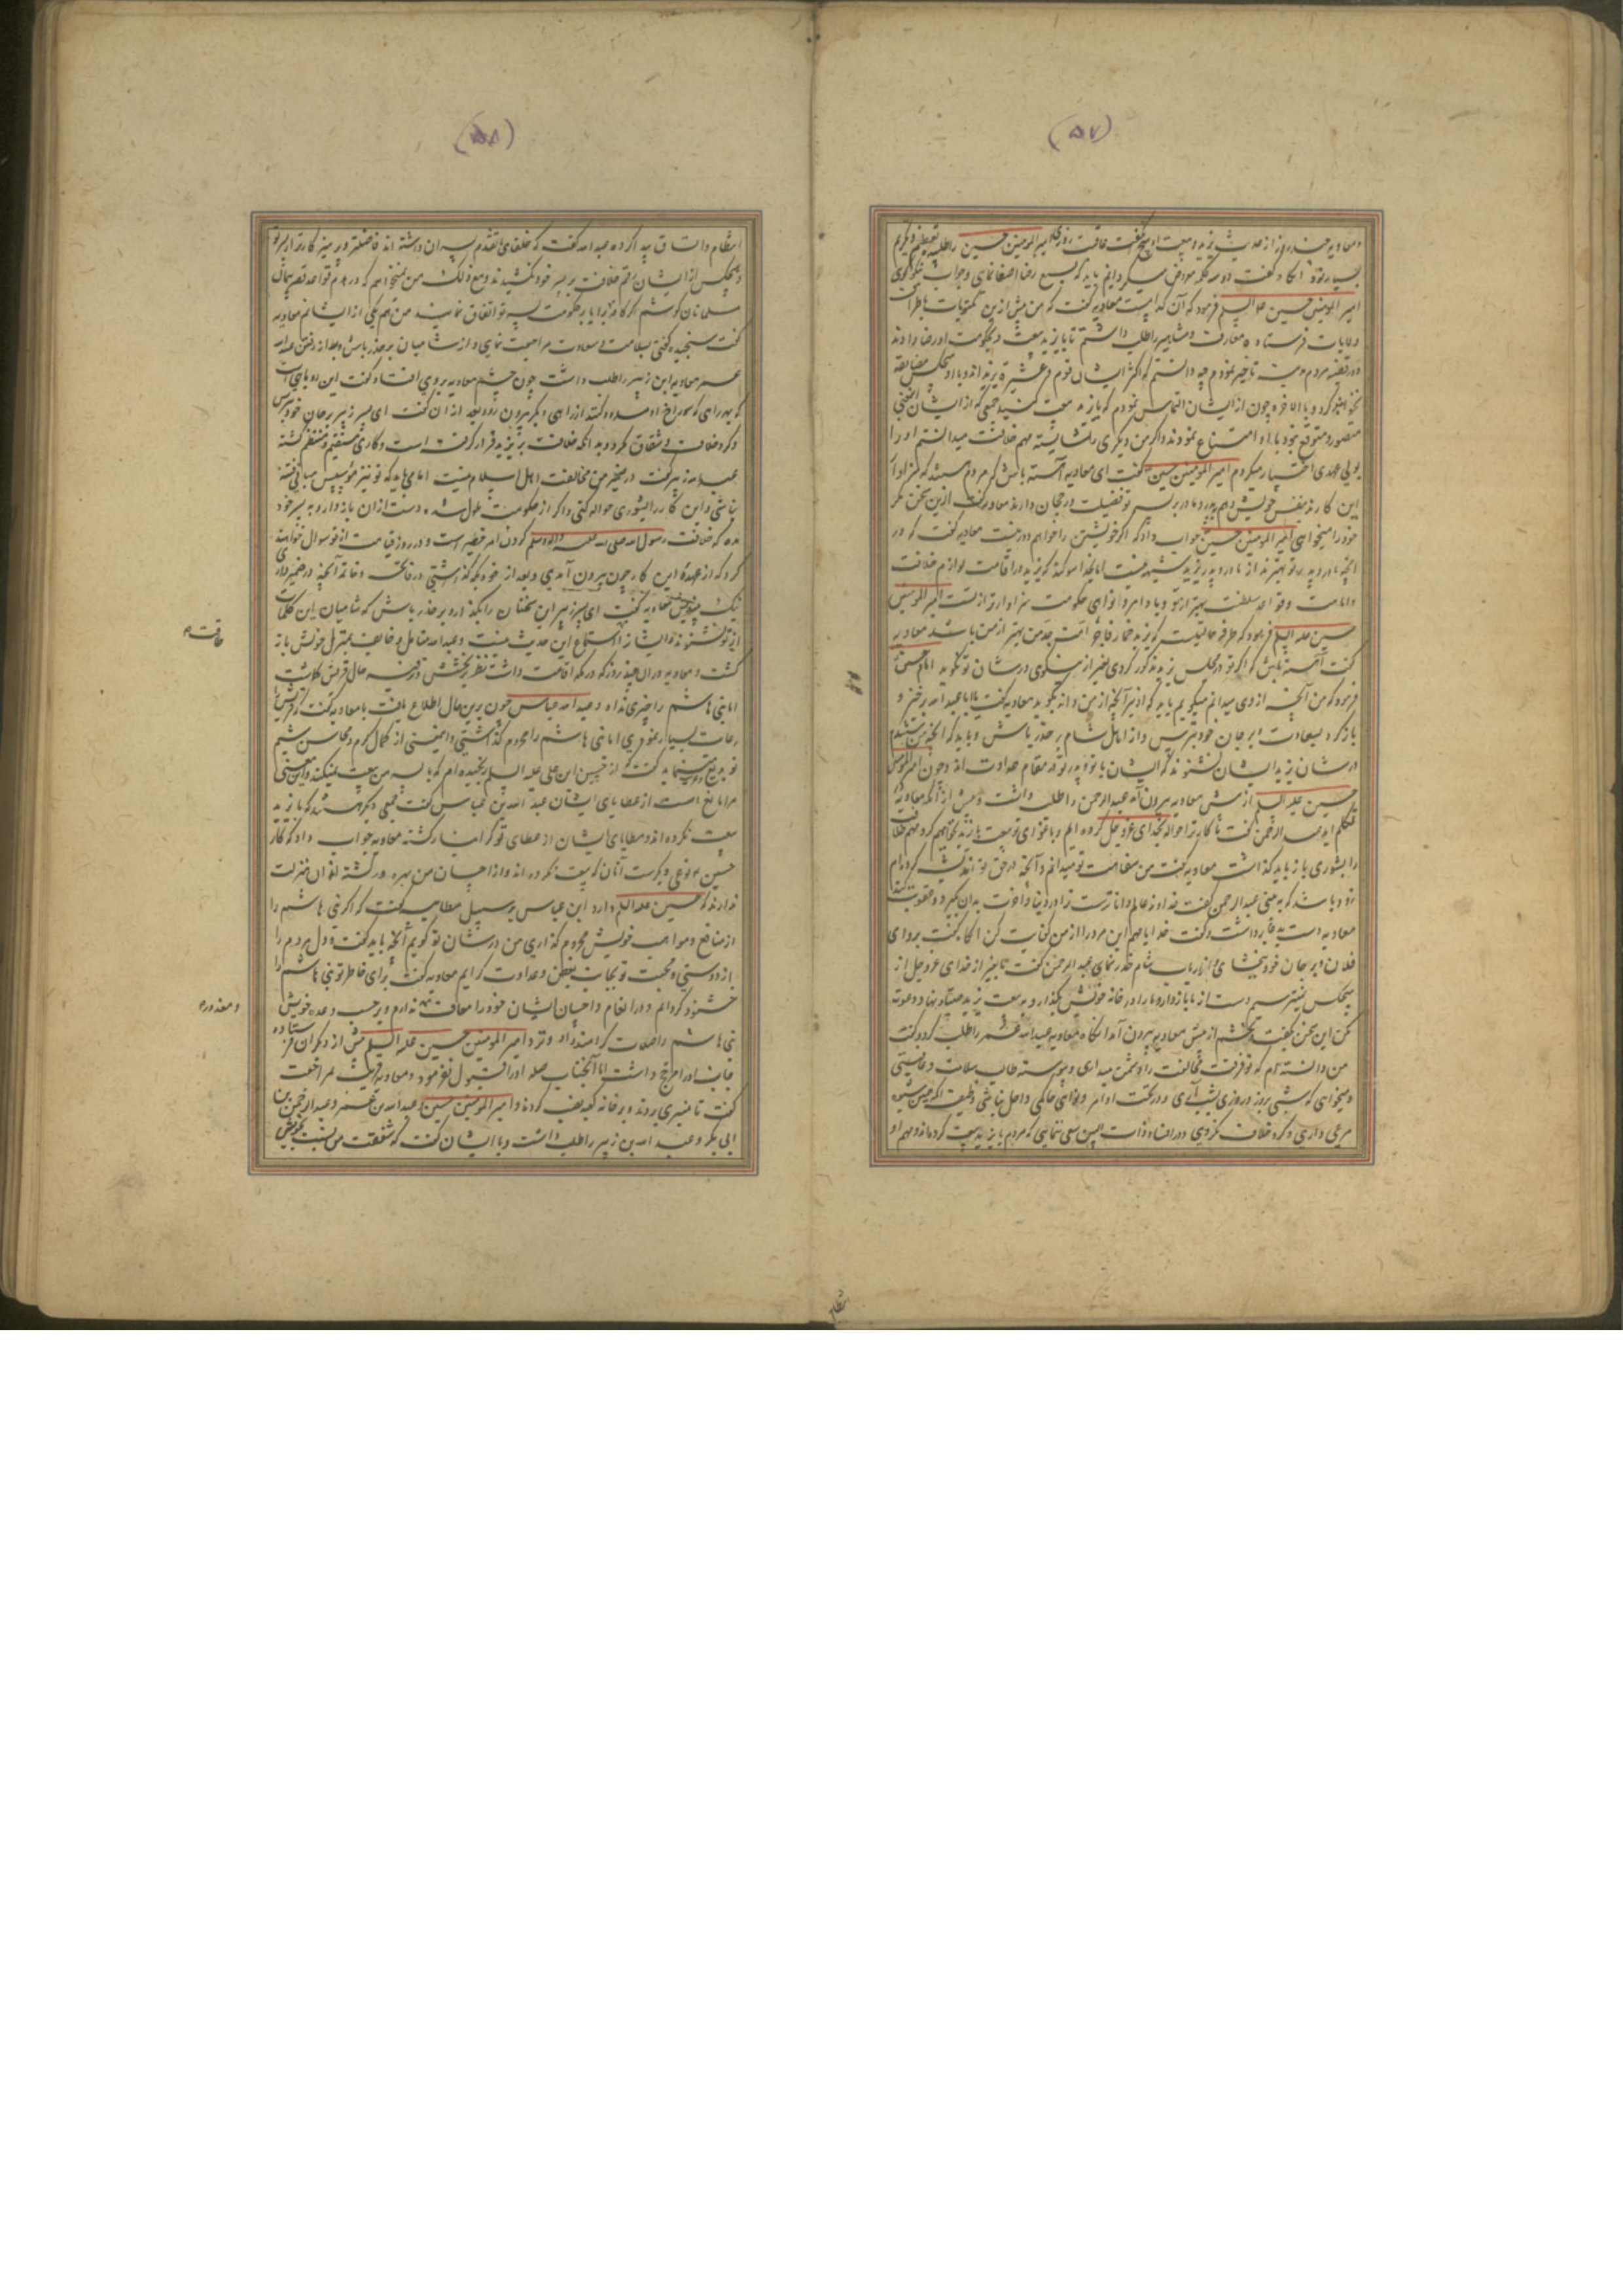 (۵۷)
و معاویه چند روز از حدیث یزید و بیعت او هیچ نگفت عاقبت روزی امیر المومنین حسین را طلبید تعظیم و تکریم
بسیار نمود آنگاه گفت باید که بسمع رضا اصغا نمای و جواب نیکو گوی
امیر المومنین حسین علیه السلام فرمود که آن کدامست معاویه گفت که من پیش ازین مکتوبات باطراف
و ولایات فرستاده معارف و مشاهیر را طلب داشتم تا با یزید بیعت و بحکومت او رضا دادند
و در قضیه مردم مدینه تاخیر نمودم چه دانستم که اکثر ایشان قوم و عشیره یزید اند و با او هیچکس مضایقه
نخواهد کرد و بالاخره چون از ایشان التماس نمودم که با یزید بیعت کنید جمعی که از ایشان این معنی
متصور و متوقع نبود با او امتناع نمودند و اگر من دیگری را شایسته مهم خلافت میدانستم او را
بولی عهدی اختیار میکردم امیر المومنین حسین گفت ای معاویه آهسته باش که مردم هستند که سزاوار
این کارند بنفس خویش و هم بپدر و مادر بر پسر تو فضیلت و رجحان دارند معاویه گفت ازین سخن مگر
خود را میخواهی امیر المومنین حسین جواب داد که اگر خویشتن را خواهم دور نیست معاویه گفت که در
آنچه مادر و پدر تو بهترند از مادر و پدر یزید شبهه نیست اما بخدا سوگند که یزید در اقامت لوازم خلافت
و امامت و قواعد سلطنت بهتر از تو و باوامر و نواهی حکومت سزاوارتر از تست امیر المومنین
حسین علیه السلام فرمود که طرفه حالیست که یزید خمار فاجر امت جد من بهتر از من باشد معاویه
گفت آهسته باش که اگر تو در مجلس یزید مذکور گردی بغیر از نیکوی در شان تو نگوید امام حسین
فرمود که من آنچه از وی میدانم میگویم باید که او نیز آنچه از من داند بگوید معاویه گفت یا ابا عبد الله برخیز و
بازگرد بسعادت و بر جان خود بترس و از اهل شام بر حذر باش و باید که آنچه من شنیدم
در شان یزید ایشان نشنوند که ایشان با تو و پدر تو در مقام عداوت اند و چون امیر المومنین
حسین علیه السلام از پیش معاویه بیرون آمد عبد الرحمن را طلب داشت و پیش از آنکه معاویه
متکلم آید عبد الرحمن گفت ما کار ترا حواله بخدای عز و جل کرده ایم و باغوای تو بیعت با یزید نخواهیم کرد و مهم خلافت
را بشوری باز باید گذاشت معاویه گفت من سفاهت تو میدانم و آنچه در حق تو اندیشه کرده ام
زود باشد که به بینی عبد الرحمن گفت خداوند عالم و دانا ترست ترا در دنیا و آخرت بدان بگیرد و عقوبت کند
معاویه دست بدعا برداشت و گفت خدایا مهم این مرد را از من کفایت کن آنگاه گفت برو ای
فلان و بر جان خود ببخشای و از ارباب شام حذر نمای عبد الرحمن گفت ما بغیر از خدای عز و جل از
هیچکس نمیترسیم دست از ما باز دار و ما را در خانه خویش بگذار و به بیعت یزید دعوت
مکن این سخن بگفت و بخشم از پیش معاویه بیرون آمد آنگاه معاویه عبد الله عمر را طلب کرد و گفت
من دانسته ام که تو فرقت و مخالفت را دشمن میداری و پیوسته طالب سلامت و عافیتی
و نمیخواهی که شبی بروز و روزی بشب آری و در تحت اوامر و نواهی حاکمی داخل نباشی وظیفه آنکه همین شیوه
مرعی داری و گرد خلاف نگردی و در افساد ذات البین سعی ننمایی که مردم با یزید بیعت کرده اند و مهم او
(۵۸)
انتظام و اتساق پیدا کرده عبد الله گفت که خلفای متقدم پسران داشته اند فاضلتر و پرهیزکارتر از پسر تو
و هیچکس از ایشان رقم خلافت بر پسر خود نکشیدند و مع ذلک من نمیخواهم که در هدم قواعد
مسلمانان کوشم اگر کافه برایا بر حکومت پسر تو اتفاق نمایند من هم یکی از ایشانم معاویه
گفت سنجیده گفتی بسلامت و سعادت مراجعت نمای و از شامیان بر حذر باش و بعد از رفتن عبد الله
عمر معاویه ابن زبیر را طلب داشت چون چشم معاویه بر وی افتاد گفت این روباهی است
که بهر راهی که سوراخ او مسدود کنند از راهی دیگر بیرون رود بعد از آن گفت ای پسر زبیر بر جان خود بترس
و گرد خلاف و شقاق مگرد بدانکه خلافت بر یزید قرار گرفته است و کار وی مستقیم و منتظم گشته
عبد الله زبیر گفت در ضمیر من مخالفت اهل اسلام نیست اما می باید که تو نیز موسس مبانی فتنه
نباشی و این کار را بشوری حواله کنی و اگر از حکومت ملول شده دست از آن باز دار و به پسر خود
مده که خلافت رسول الله صلی الله علیه و اله و سلم کردن امر خطیر است و در روز قیامت از تو سوال خواهند
کرد که از عهده این کار چون بیرون آمدی و بعد از خود بکه گذاشتی
نیک معاویه گفت ای پسر زبیر این سخنان را بگذار و بر حذر باش که شامیان این کلمات
از تو نشنوند و ایشان را استماع این حدیث نیست و عبد الله متامل و خایف بمنزل خویش باز
گشت و معاویه در آن چند روز که در مکه اقامت داشت نظر بخشش و ترفیه حال قریش گماشت
اما بنی هاشم را چیزی نداد و عبد الله عباس چون برین حال اطلاع یافت با معاویه گفت که قریش را
رعایت بسیار نمودی اما بنی هاشم را محروم گذاشتی و این معنی از کمال کرم و محاسن شیم
تو بدیع مینماید گفت که از حسین ابن علی علیه السلام رنجیده ام که با پسر من بیعت نمیکند و این معنی
مرا مانع است از عطایای ایشان عبد الله بن عباس گفت جمعی دیگر هستند که با یزید
بیعت نکرده اند و عطایای ایشان از عطای تو گرانبار گشته معاویه جواب داد که کار
حسین نوعی دیگرست آنان که بیعت نکرده اند و از احسان من بهره ور گشته اند آن منزلت
ندارند که حسین علیه السلام دارد ابن عباس بر سبیل مطایبه گفت که اگر بنی هاشم را
از منافع و مواهب خویش محروم گذاری من در شان تو گویم آنچه باید گفت و دل مردم را
از دوستی و محبت تو بجانب بغض و عداوت گرایم معاویه گفت برای خاطر تو بنی هاشم را
خشنود گردانم و در انعام و احسان ایشان خود را معاف ندارم و بر حسب وعده خویش
بنی هاشم را صلات گرامند داد و نزد امیر المومنین حسین علیه السلام بیش از دیگران فرستاده
جانب او را مرجح داشت اما آنجناب صله او را قبول نفرمود و معاویه در وقت مراجعت
گفت تا منبری بردند و بر خانه کعبه نهادند و امیر المومنین حسین و عبد الله بن عمر و عبد الرحمن بن
ابی بکر و عبد الله بن زبیر را طلب داشت و با ایشان گفت که شفقت من نسبت بخویش
عاقبت م
و معذور م